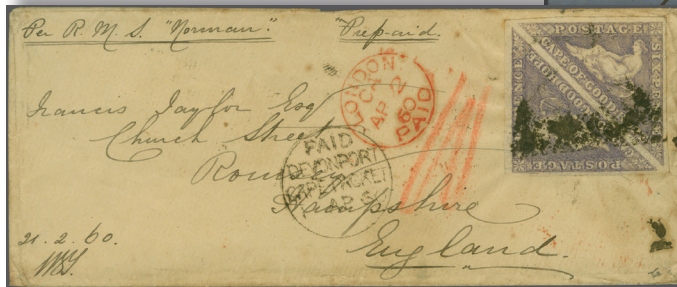 Per R. M. S. "Norman". "Prep-aid.
POSTAGE
SIX PENCE
CAPE OF GOOD HOPE
POSTAGE
LONDON
AP 2
60
PAID
Francis Taylor Esq
Church Street
Romsey
Hampshire
England.
PAID
DEVONPORT
CAPE PACKET
AP
21. 2. 60.